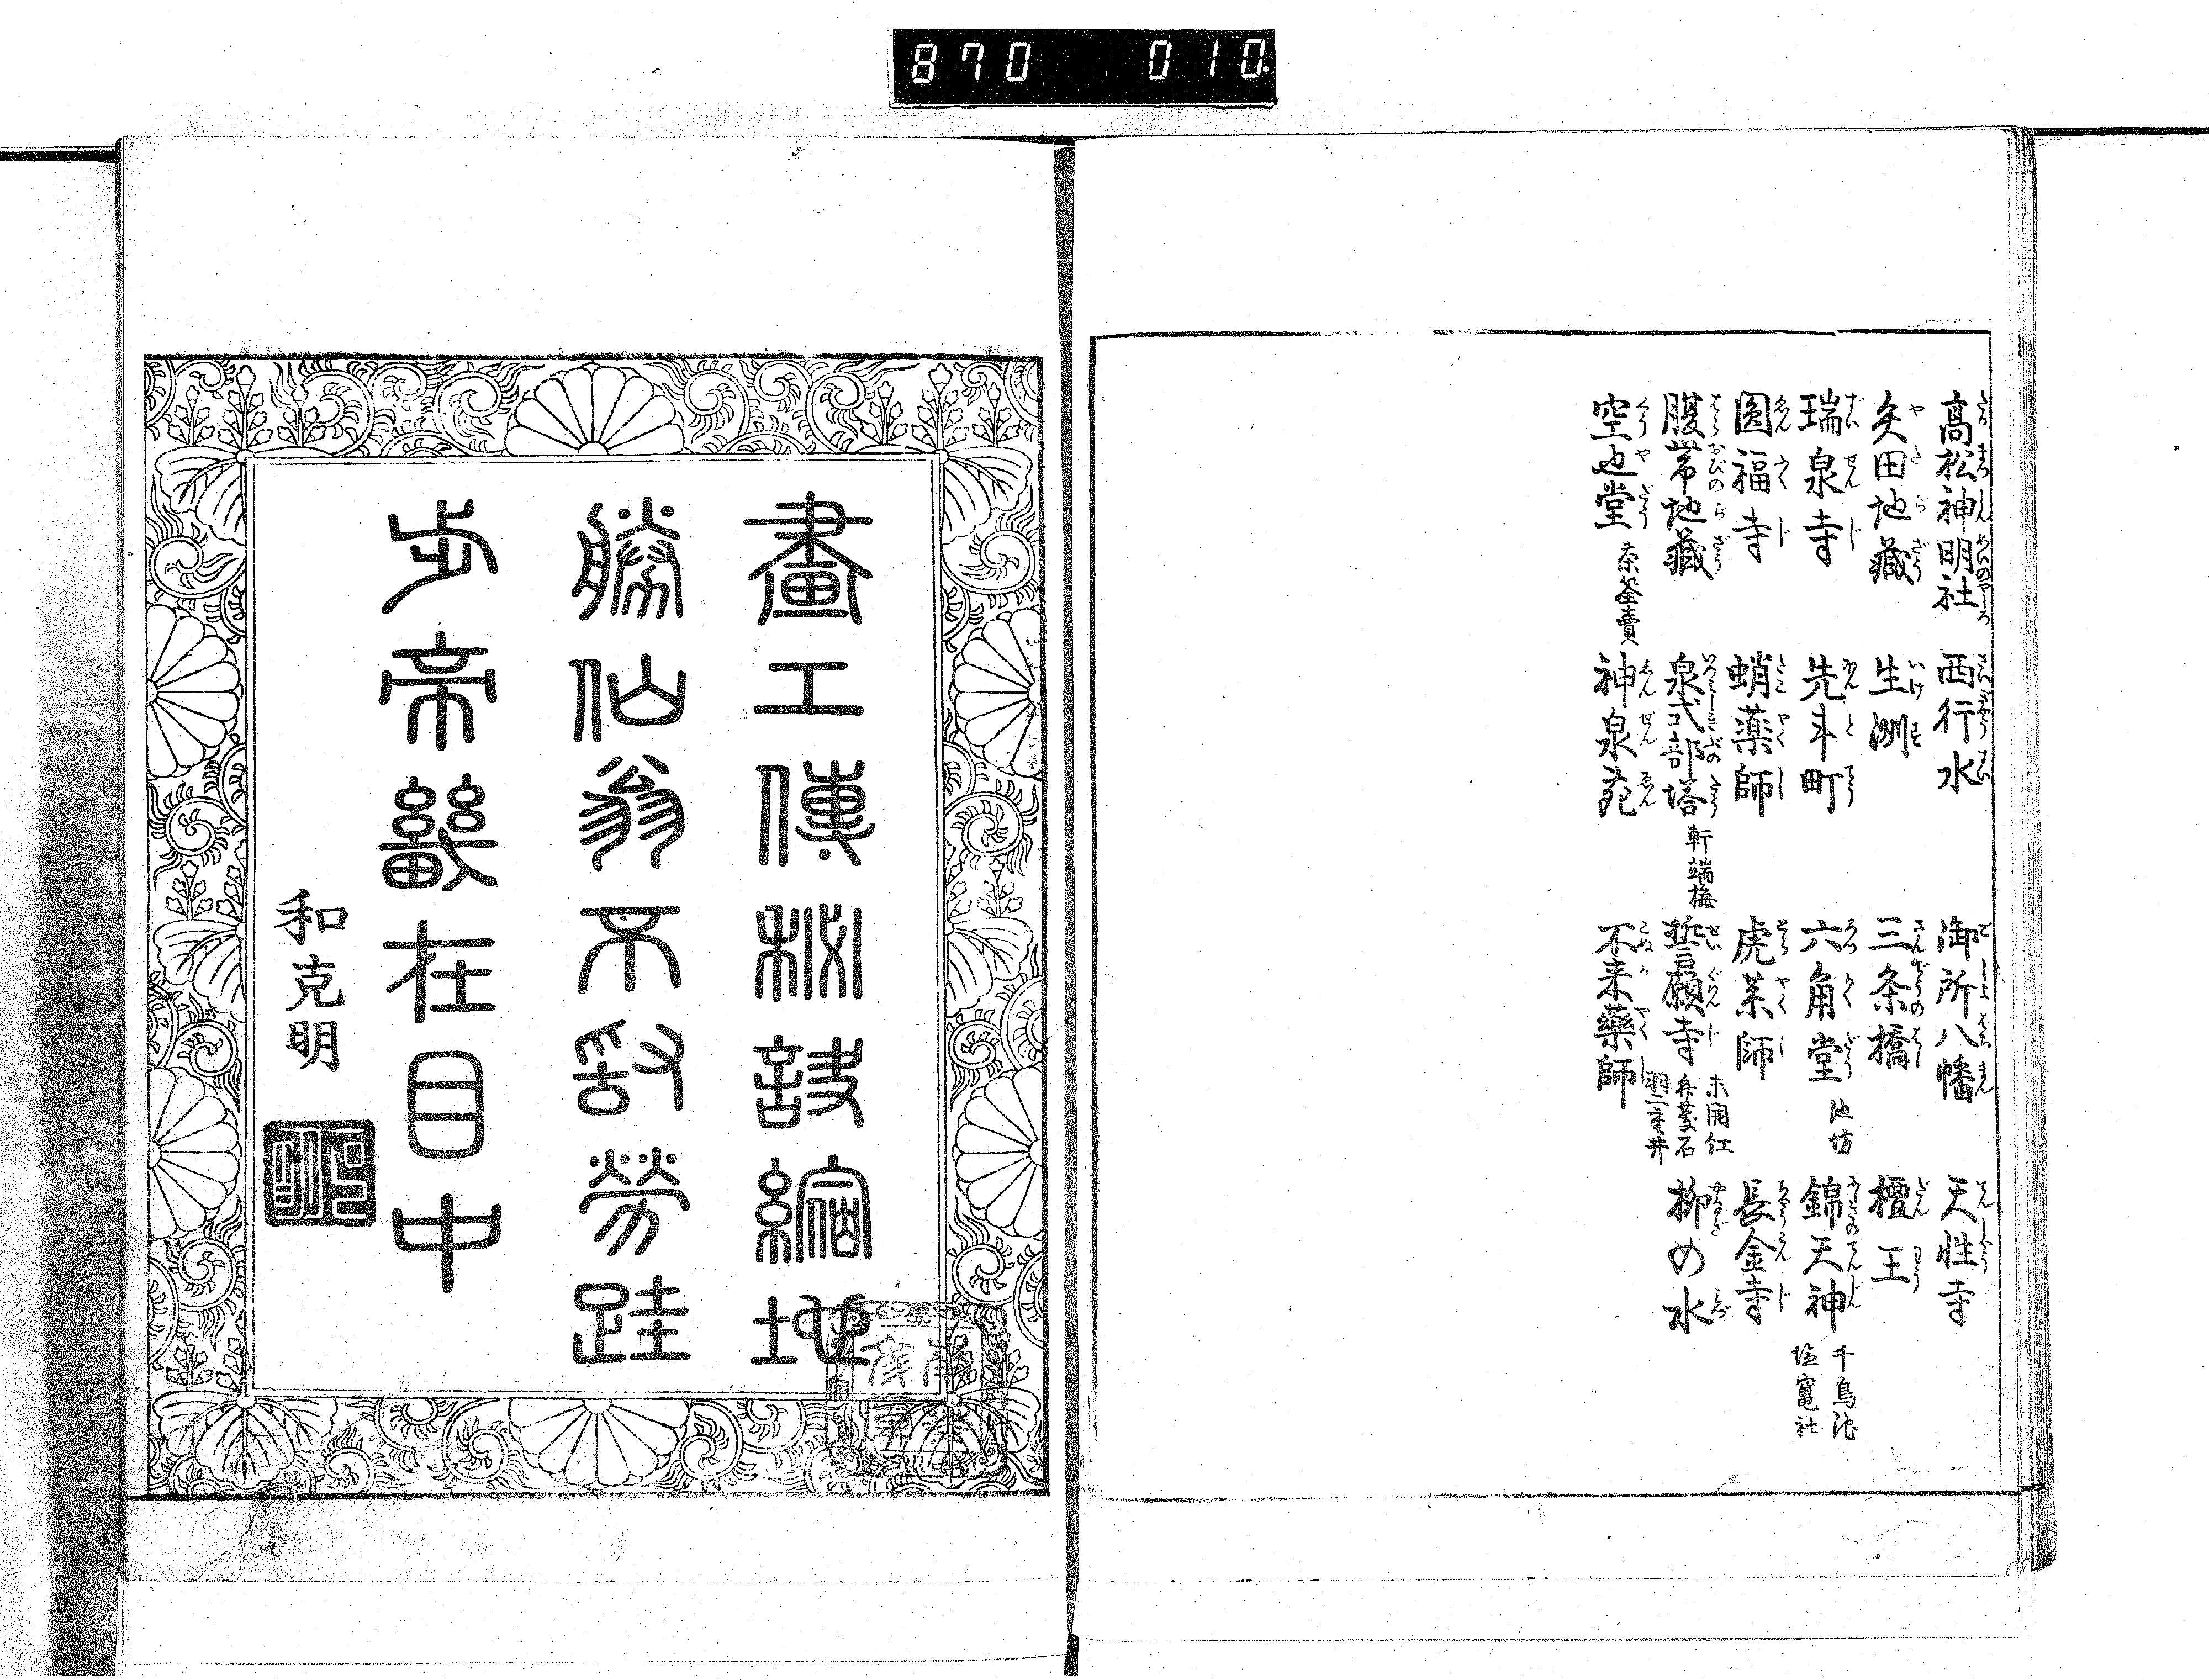 870 010
高松神明社 西行水 御所八幡 天性寺
矢田地藏 生洲 三条橋 檀王
瑞泉寺 先斗町 六角堂 池坊 錦天神 千鳥池 塩竃社
圓福寺 蛸薬師 虎薬師 長金寺
腹帯地藏 泉式部塔 軒端梅 誓願寺 未開紅 弁慶石 柳の水
空也堂 茶筌賣 神泉苑 不来薬師
畫工傳秘訣縮地
勝仙翁不辞勞跬
步帝畿在目中
和克明